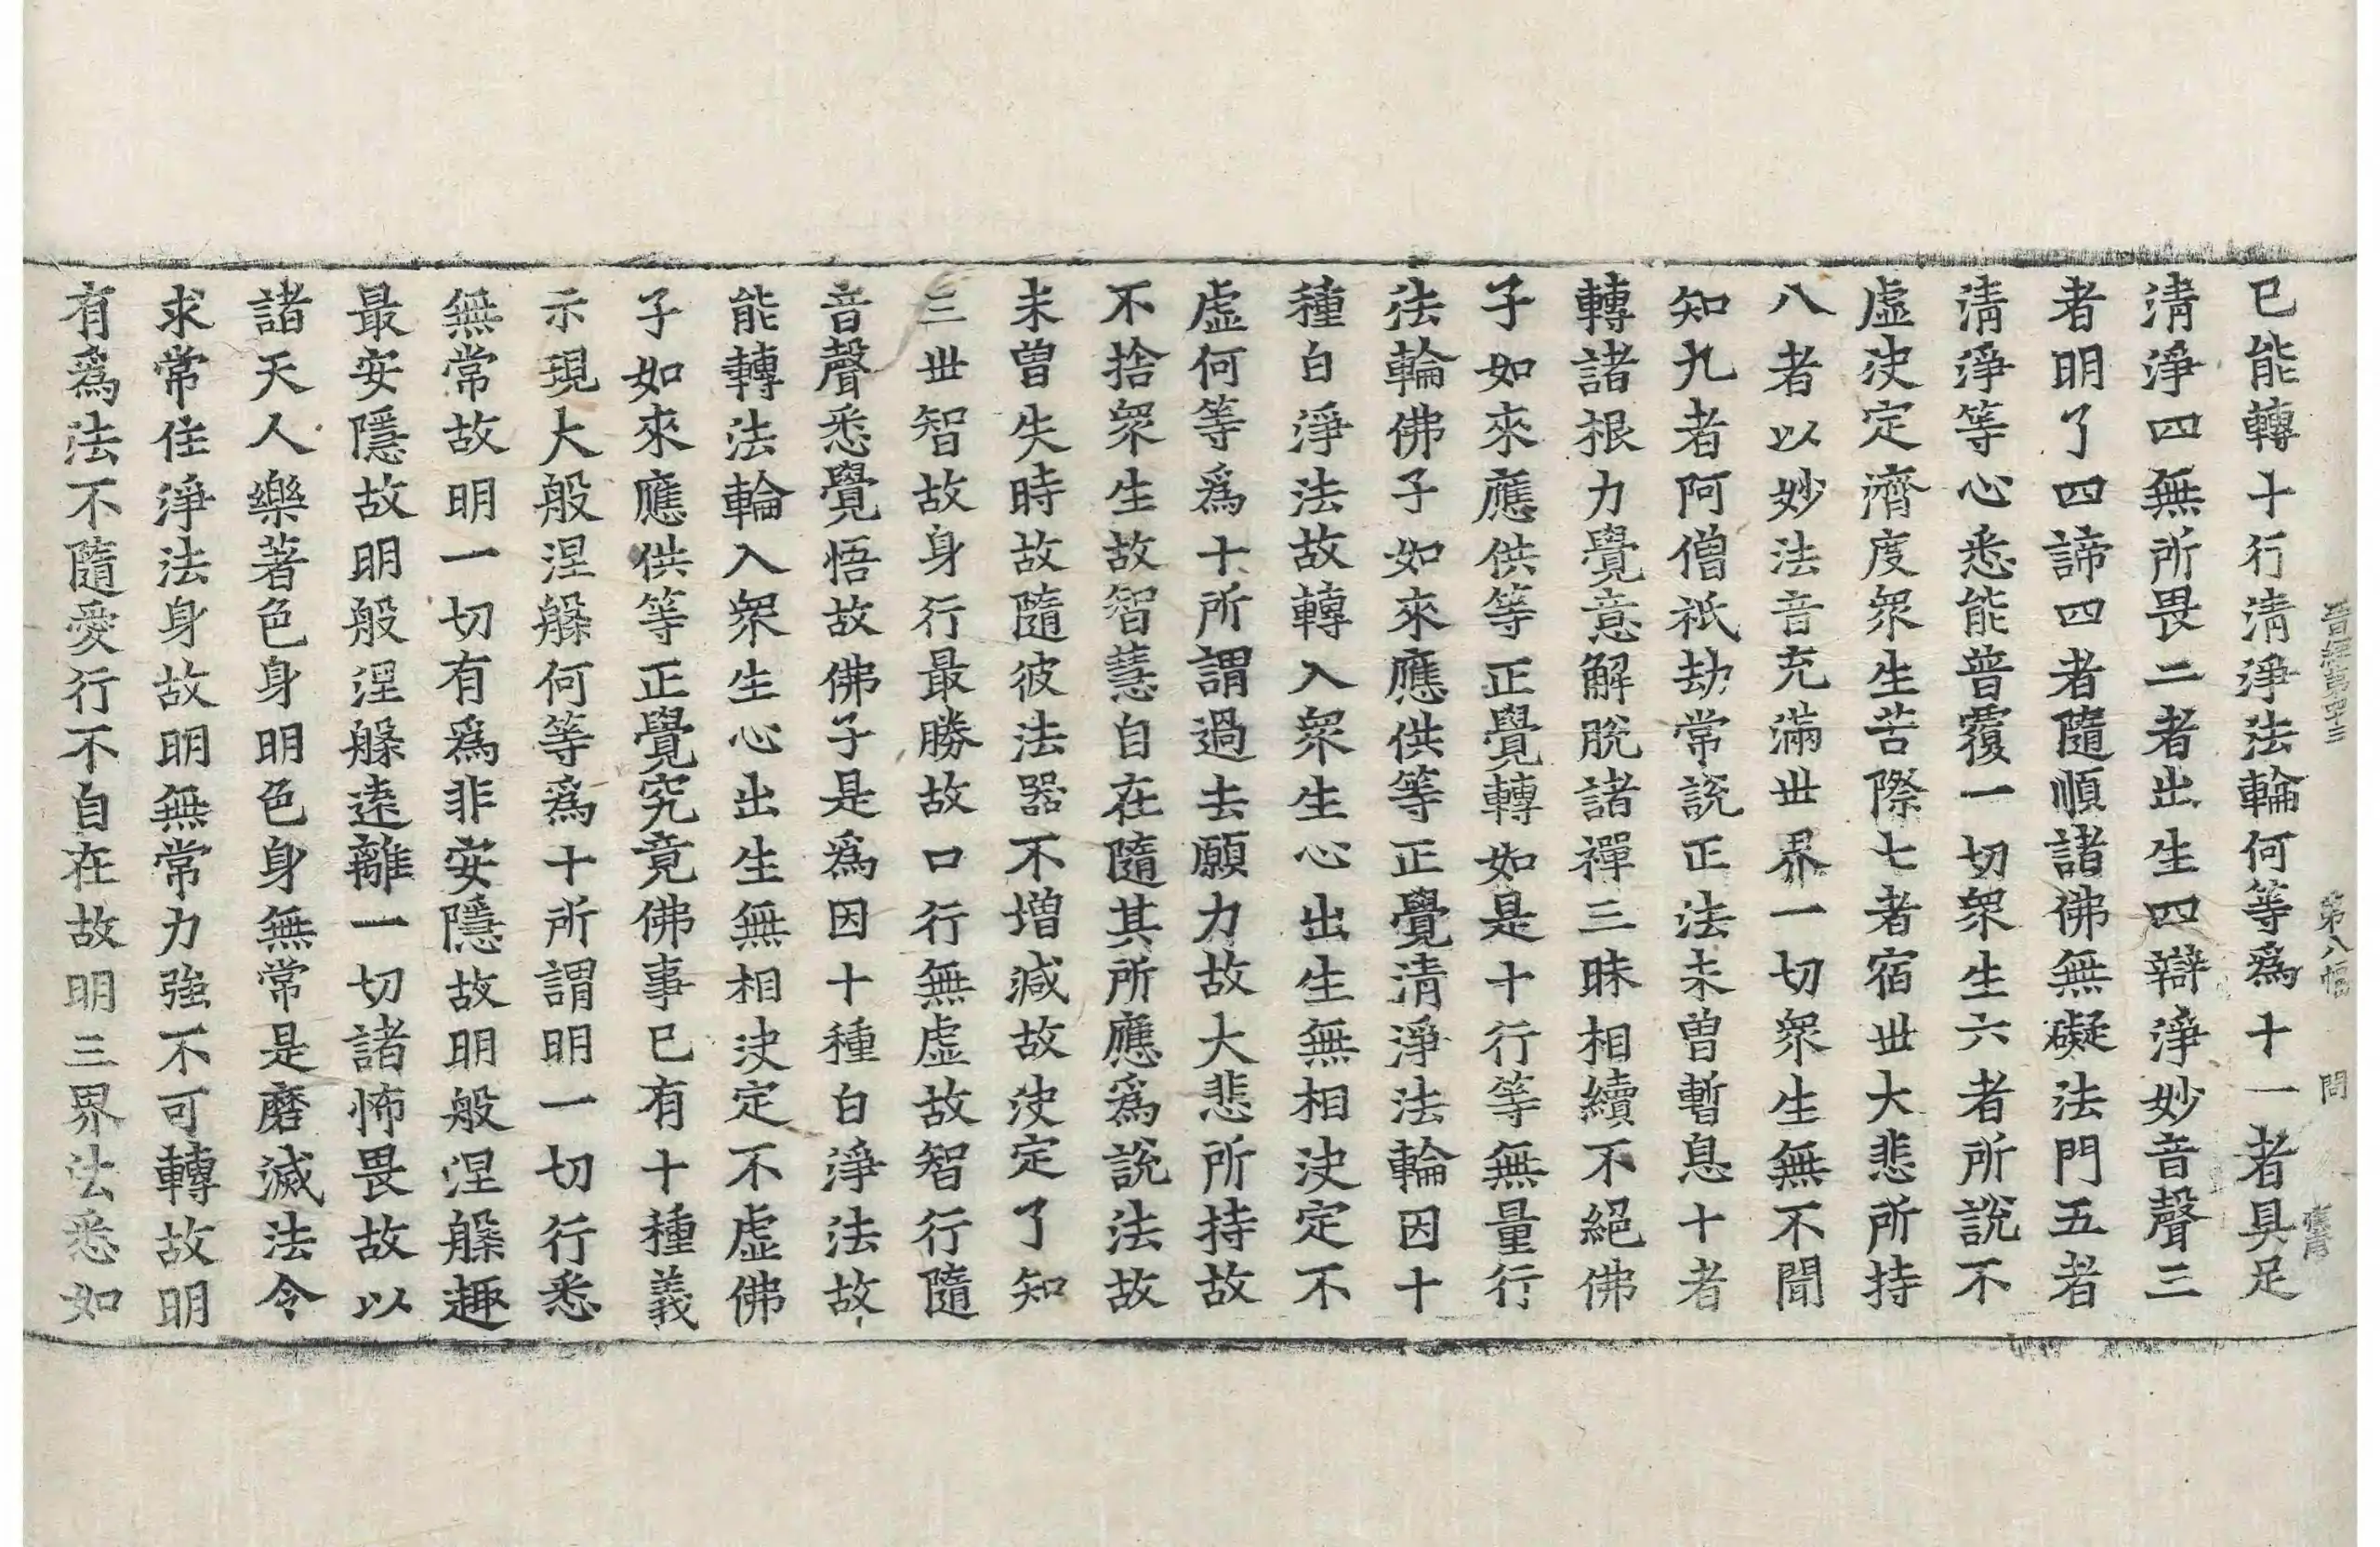 晉經第四十三 第八幅 問
已能轉十行清淨法輪何等爲十一者具足
清淨四無所畏二者出生四辯淨妙音聲三
者明了四諦四者隨順諸佛無礙法門五者
清淨等心悉能普覆一切衆生六者所說不
虛決定濟度衆生苦際七者宿世大悲所持
八者以妙法音充滿世界一切衆生無不聞
知九者阿僧祇劫常說正法未曾暫息十者
轉諸根力覺意解脫諸禪三昧相續不絕佛
子如來應供等正覺轉如是十行等無量行
法輪佛子如來應供等正覺清淨法輪因十
種白淨法故轉入衆生心出生無相決定不
虛何等爲十所謂過去願力故大悲所持故
不捨衆生故智慧自在隨其所應爲說法故
未曾失時故隨彼法器不增減故決定了知
三世智故身行最勝故口行無虛故智行隨
音聲悉覺悟故佛子是爲因十種白淨法故
能轉法輪入衆生心出生無相決定不虛佛
子如來應供等正覺究竟佛事已有十種義
示現大般涅槃何等爲十所謂明一切行悉
無常故明一切有爲非安隱故明般涅槃趣
最安隱故明般涅槃遠離一切諸怖畏故以
諸天人樂著色身明色身無常是磨滅法令
求常住淨法身故明無常力強不可轉故明
有爲法不隨愛行不自在故明三界法悉如